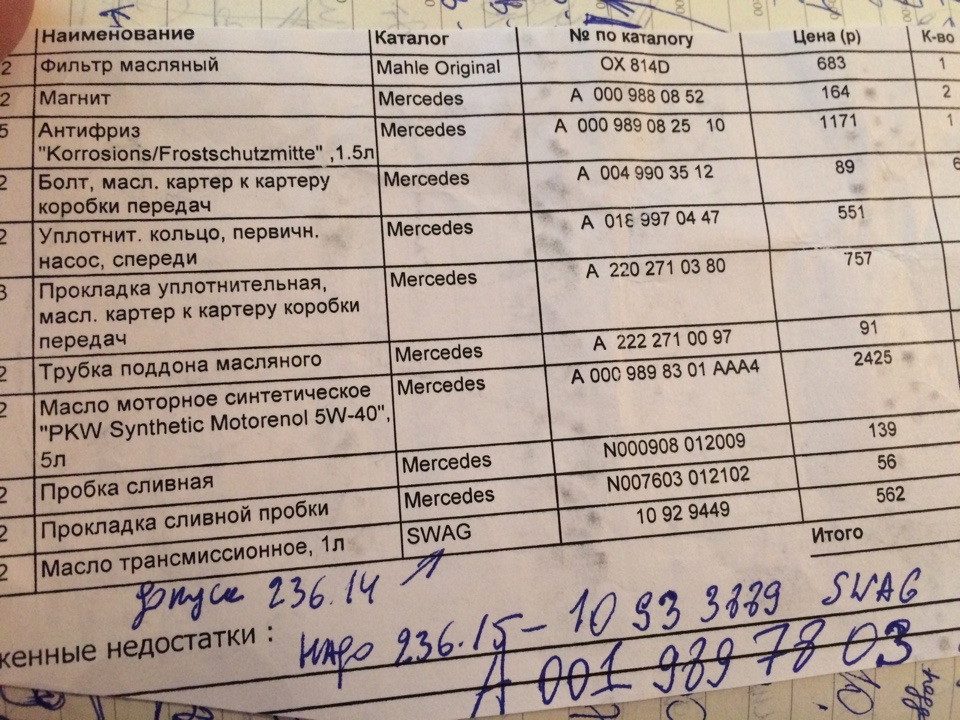 Наименование Каталог № по каталогу Цена (р) К-во
2 Фильтр масляный Mahle Original OX 814D 683 1
2 Магнит Mercedes A 000 988 08 52 164 2
5 Антифриз Mercedes A 000 989 08 25 10 1171 1
"Korrosions/Frostschutzmitte" ,1.5л
2 Болт, масл. картер к картеру Mercedes A 004 990 35 12 89 6
коробки передач
2 Уплотнит. кольцо, первичн. Mercedes A 018 997 04 47 551
насос, спереди
3 Прокладка уплотнительная, Mercedes A 220 271 03 80 757
масл. картер к картеру коробки
передач
2 Трубка поддона масляного Mercedes A 222 271 00 97 91
2 Масло моторное синтетическое Mercedes A 000 989 83 01 AAA4 2425
"PKW Synthetic Motorenol 5W-40",
5л
2 Пробка сливная Mercedes N000908 012009 139
2 Прокладка сливной пробки Mercedes N007603 012102 56
2 Масло трансмиссионное, 1л SWAG 10 92 9449 562
Итого
допуск 236.14
женные недостатки :
надо 236.15 – 10 93 3889 SWAG
A 001 989 78 03